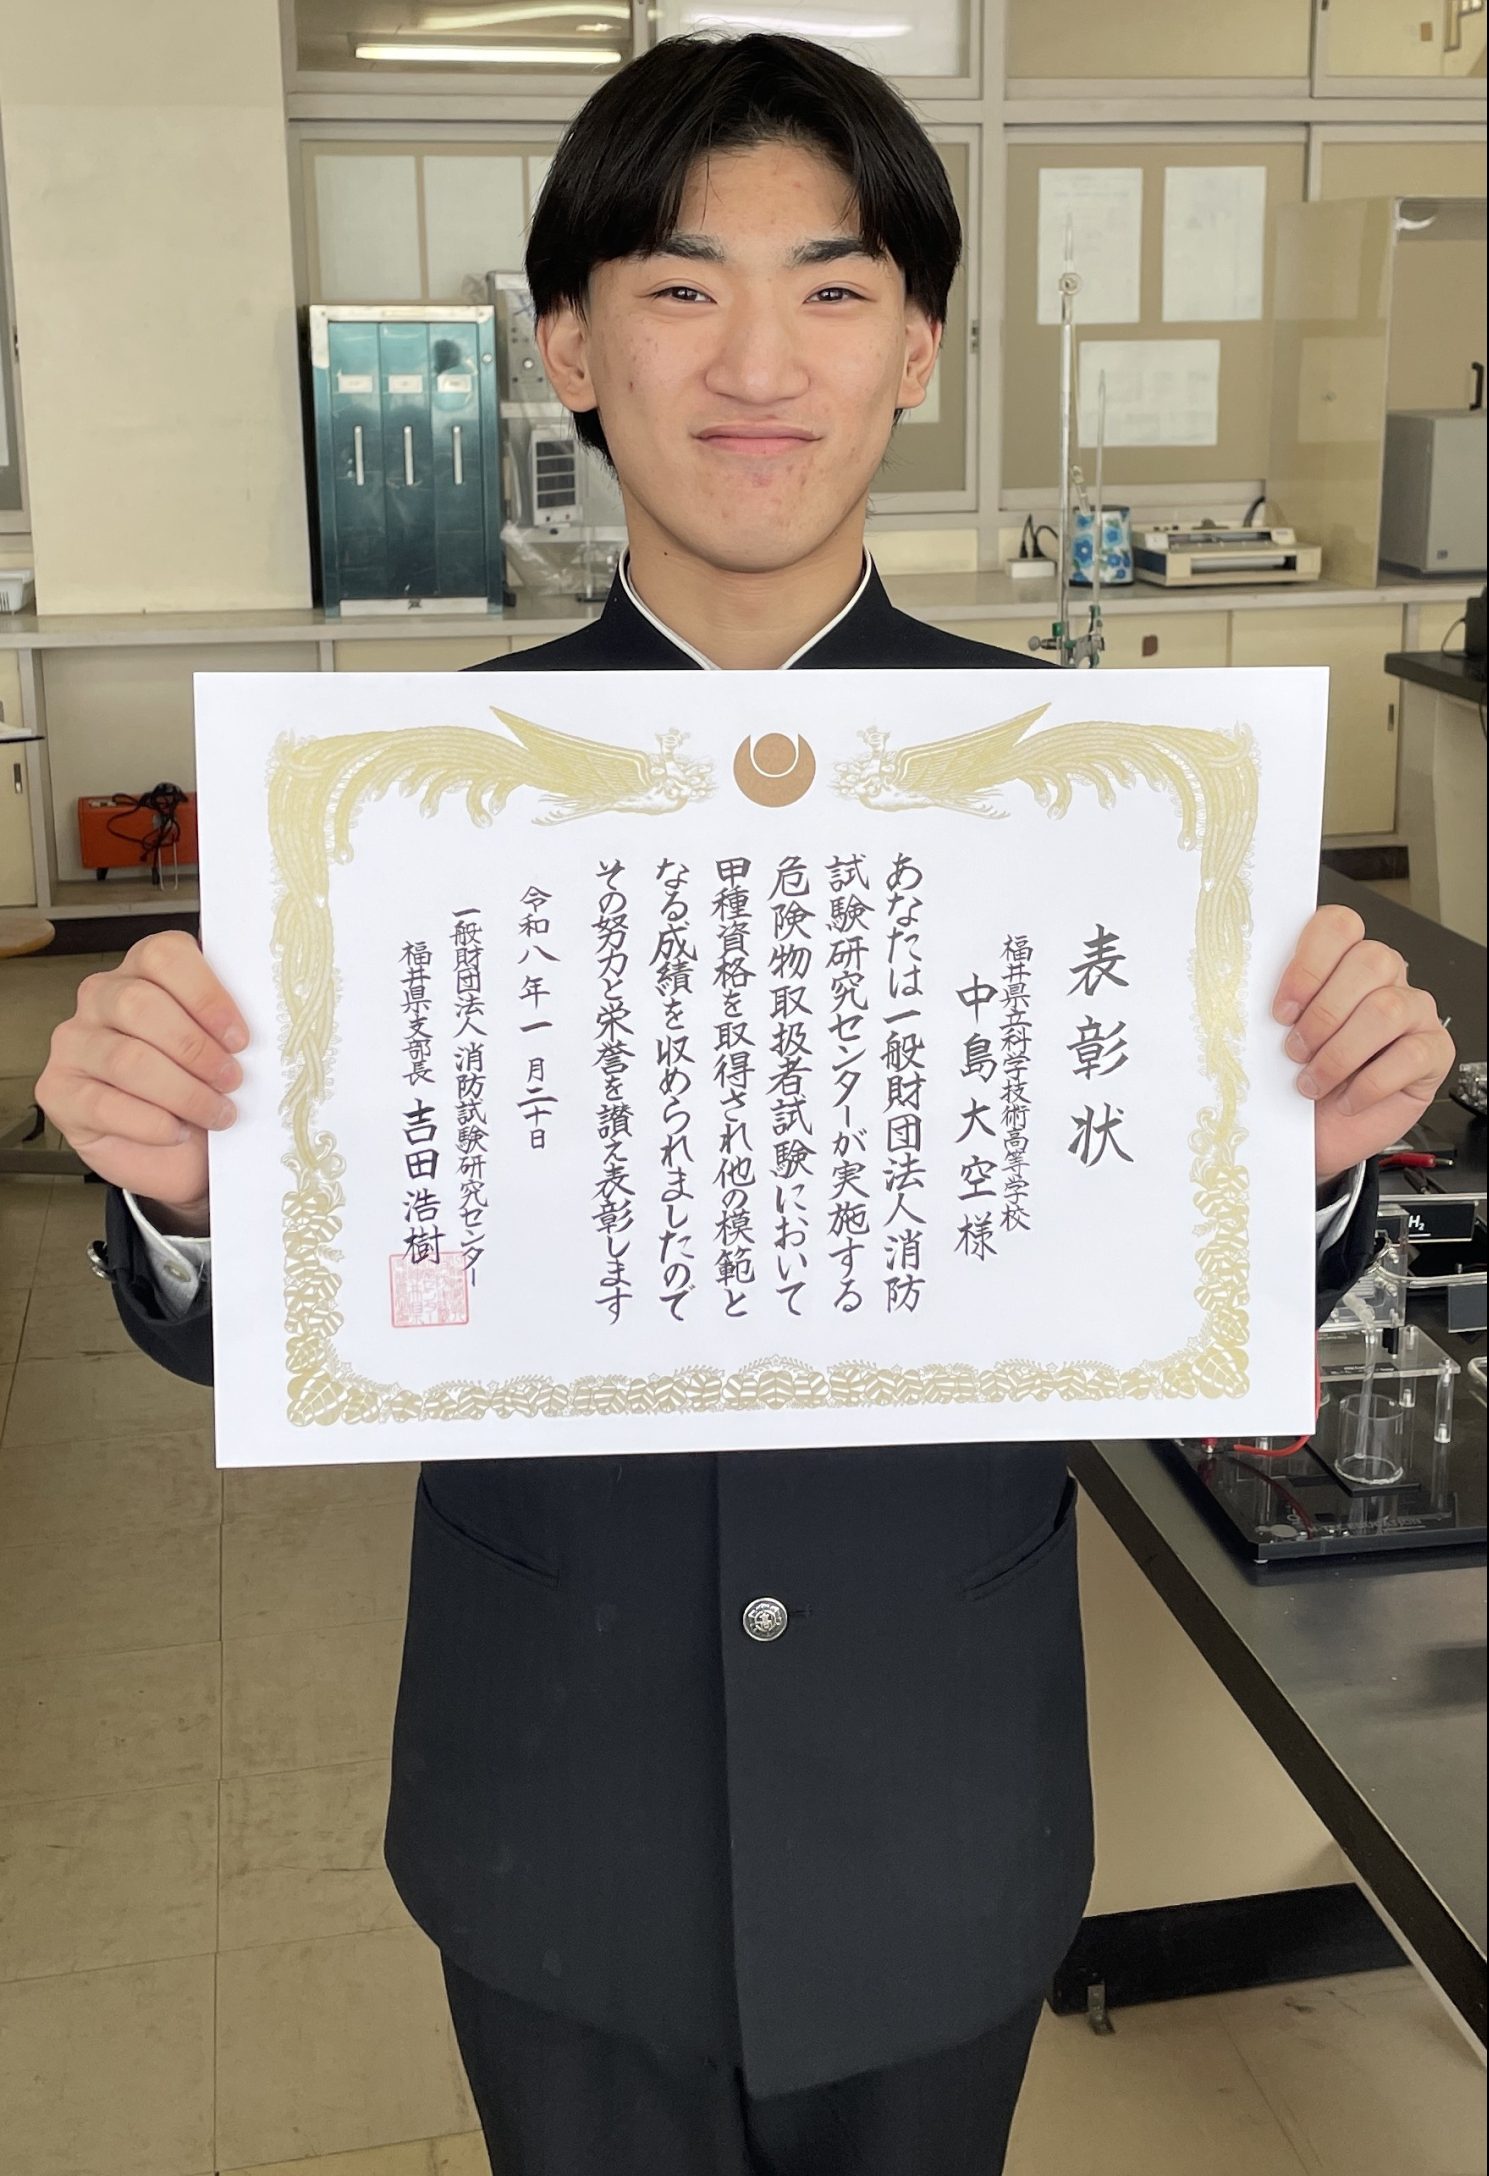 表彰状
福井県立科学技術高等学校
中島大空様
あなたは一般財団法人消防
試験研究センターが実施する
危険物取扱者試験において
甲種資格を取得され他の模範と
なる成績を収められましたので
その努力と栄誉を讃え表彰します
令和八年一月二十日
一般財団法人消防試験研究センター
福井県支部長 吉田浩樹
H₂